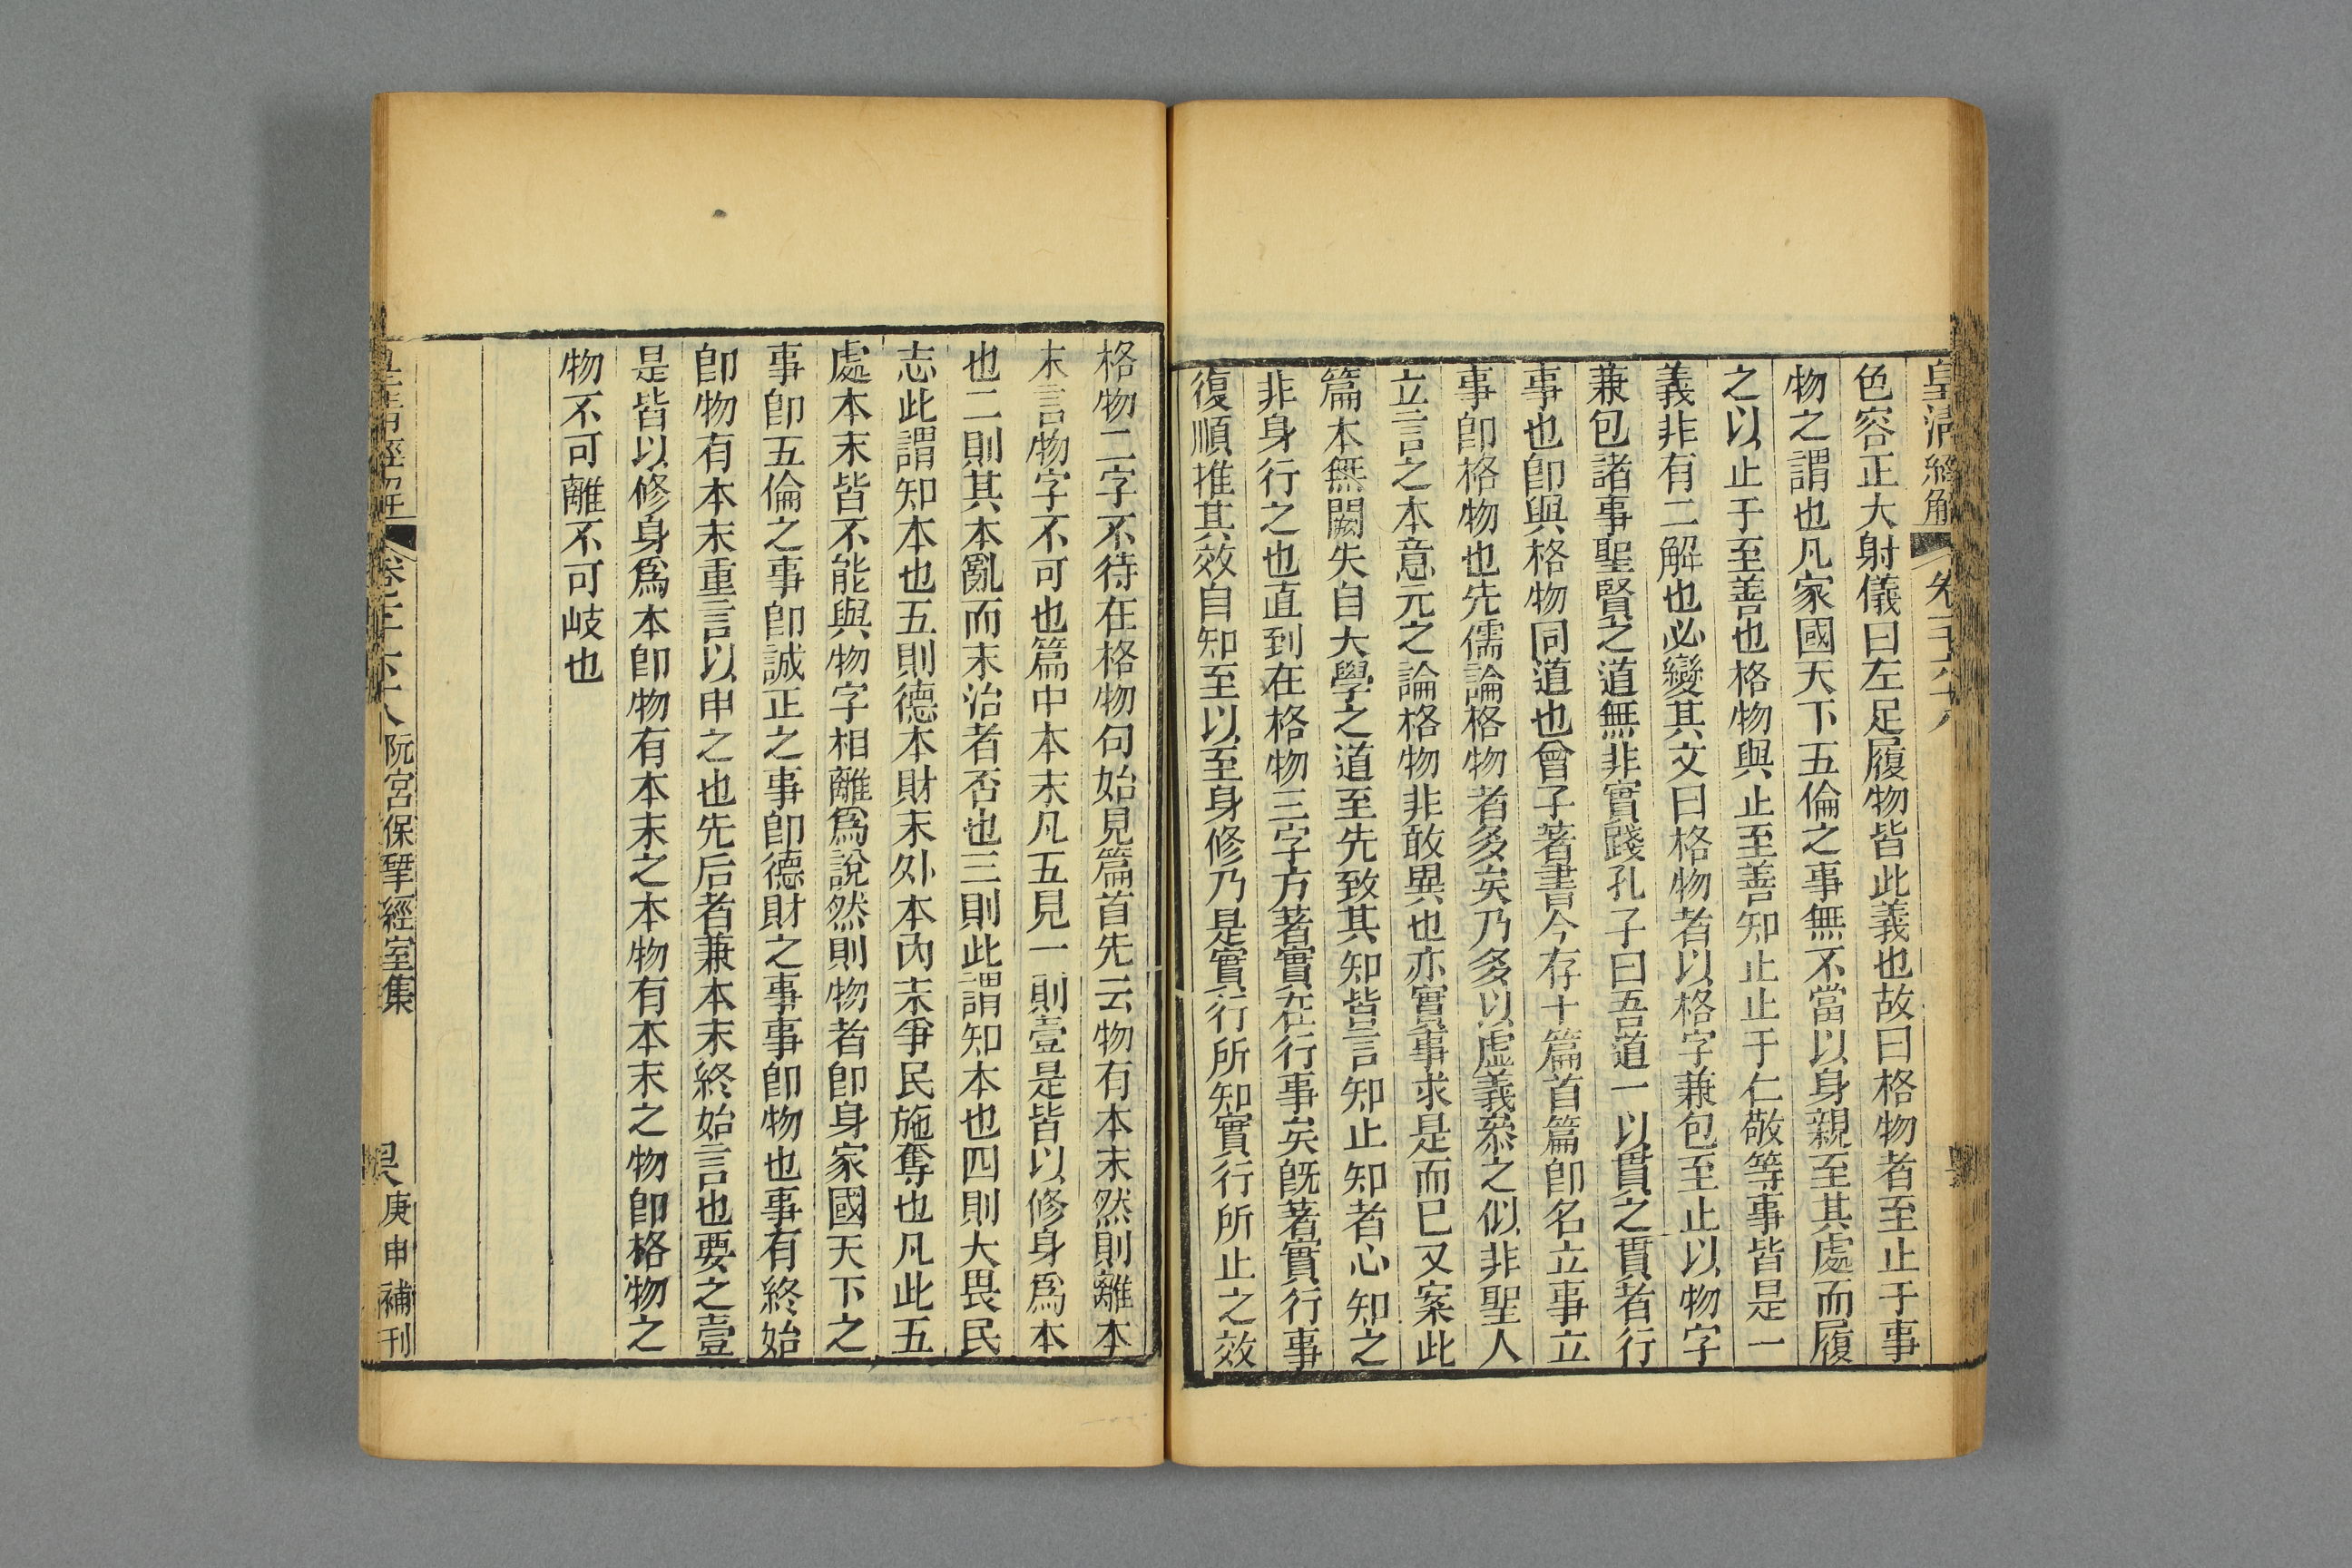 皇清經解 卷千六十八
色容正大射儀曰左足履物皆此義也故曰格物者至止于事
物之謂也凡家國天下五倫之事無不當以身親至其處而履
之以止于至善也格物與止至善知止止于仁敬等事皆是一
義非有二解也必變其文曰格物者以格字兼包至止以物字
兼包諸事聖賢之道無非實踐孔子曰吾道一以貫之貫者行
事也卽與格物同道也曾子著書今存十篇首篇卽名立事立
事卽格物也先儒論格物者多矣乃多以虛義叅之似非聖人
立言之本意元之論格物非敢異也亦實事求是而已又案此
篇本無闕失自大學之道至先致其知皆言知止知者心知之
非身行之也直到在格物三字方著實在行事矣旣著實行事
復順推其效自知至以至身修乃是實行所知實行所止之效
格物二字不待在格物句始見篇首先云物有本末然則離本
末言物字不可也篇中本末凡五見一則壹是皆以修身爲本
也二則其本亂而末治者否也三則此謂知本也四則大畏民
志此謂知本也五則德本財末外本內末爭民施奪也凡此五
處本末皆不能與物字相離爲說然則物者卽身家國天下之
事卽五倫之事卽誠正之事卽德財之事事卽物也事有終始
卽物有本末重言以申之也先后者兼本末終始言也要之壹
是皆以修身爲本卽物有本末之本物有本末之物卽格物之
物不可離不可岐也
皇清經解 卷千六十八 阮宮保揅經室集 庚申補刊